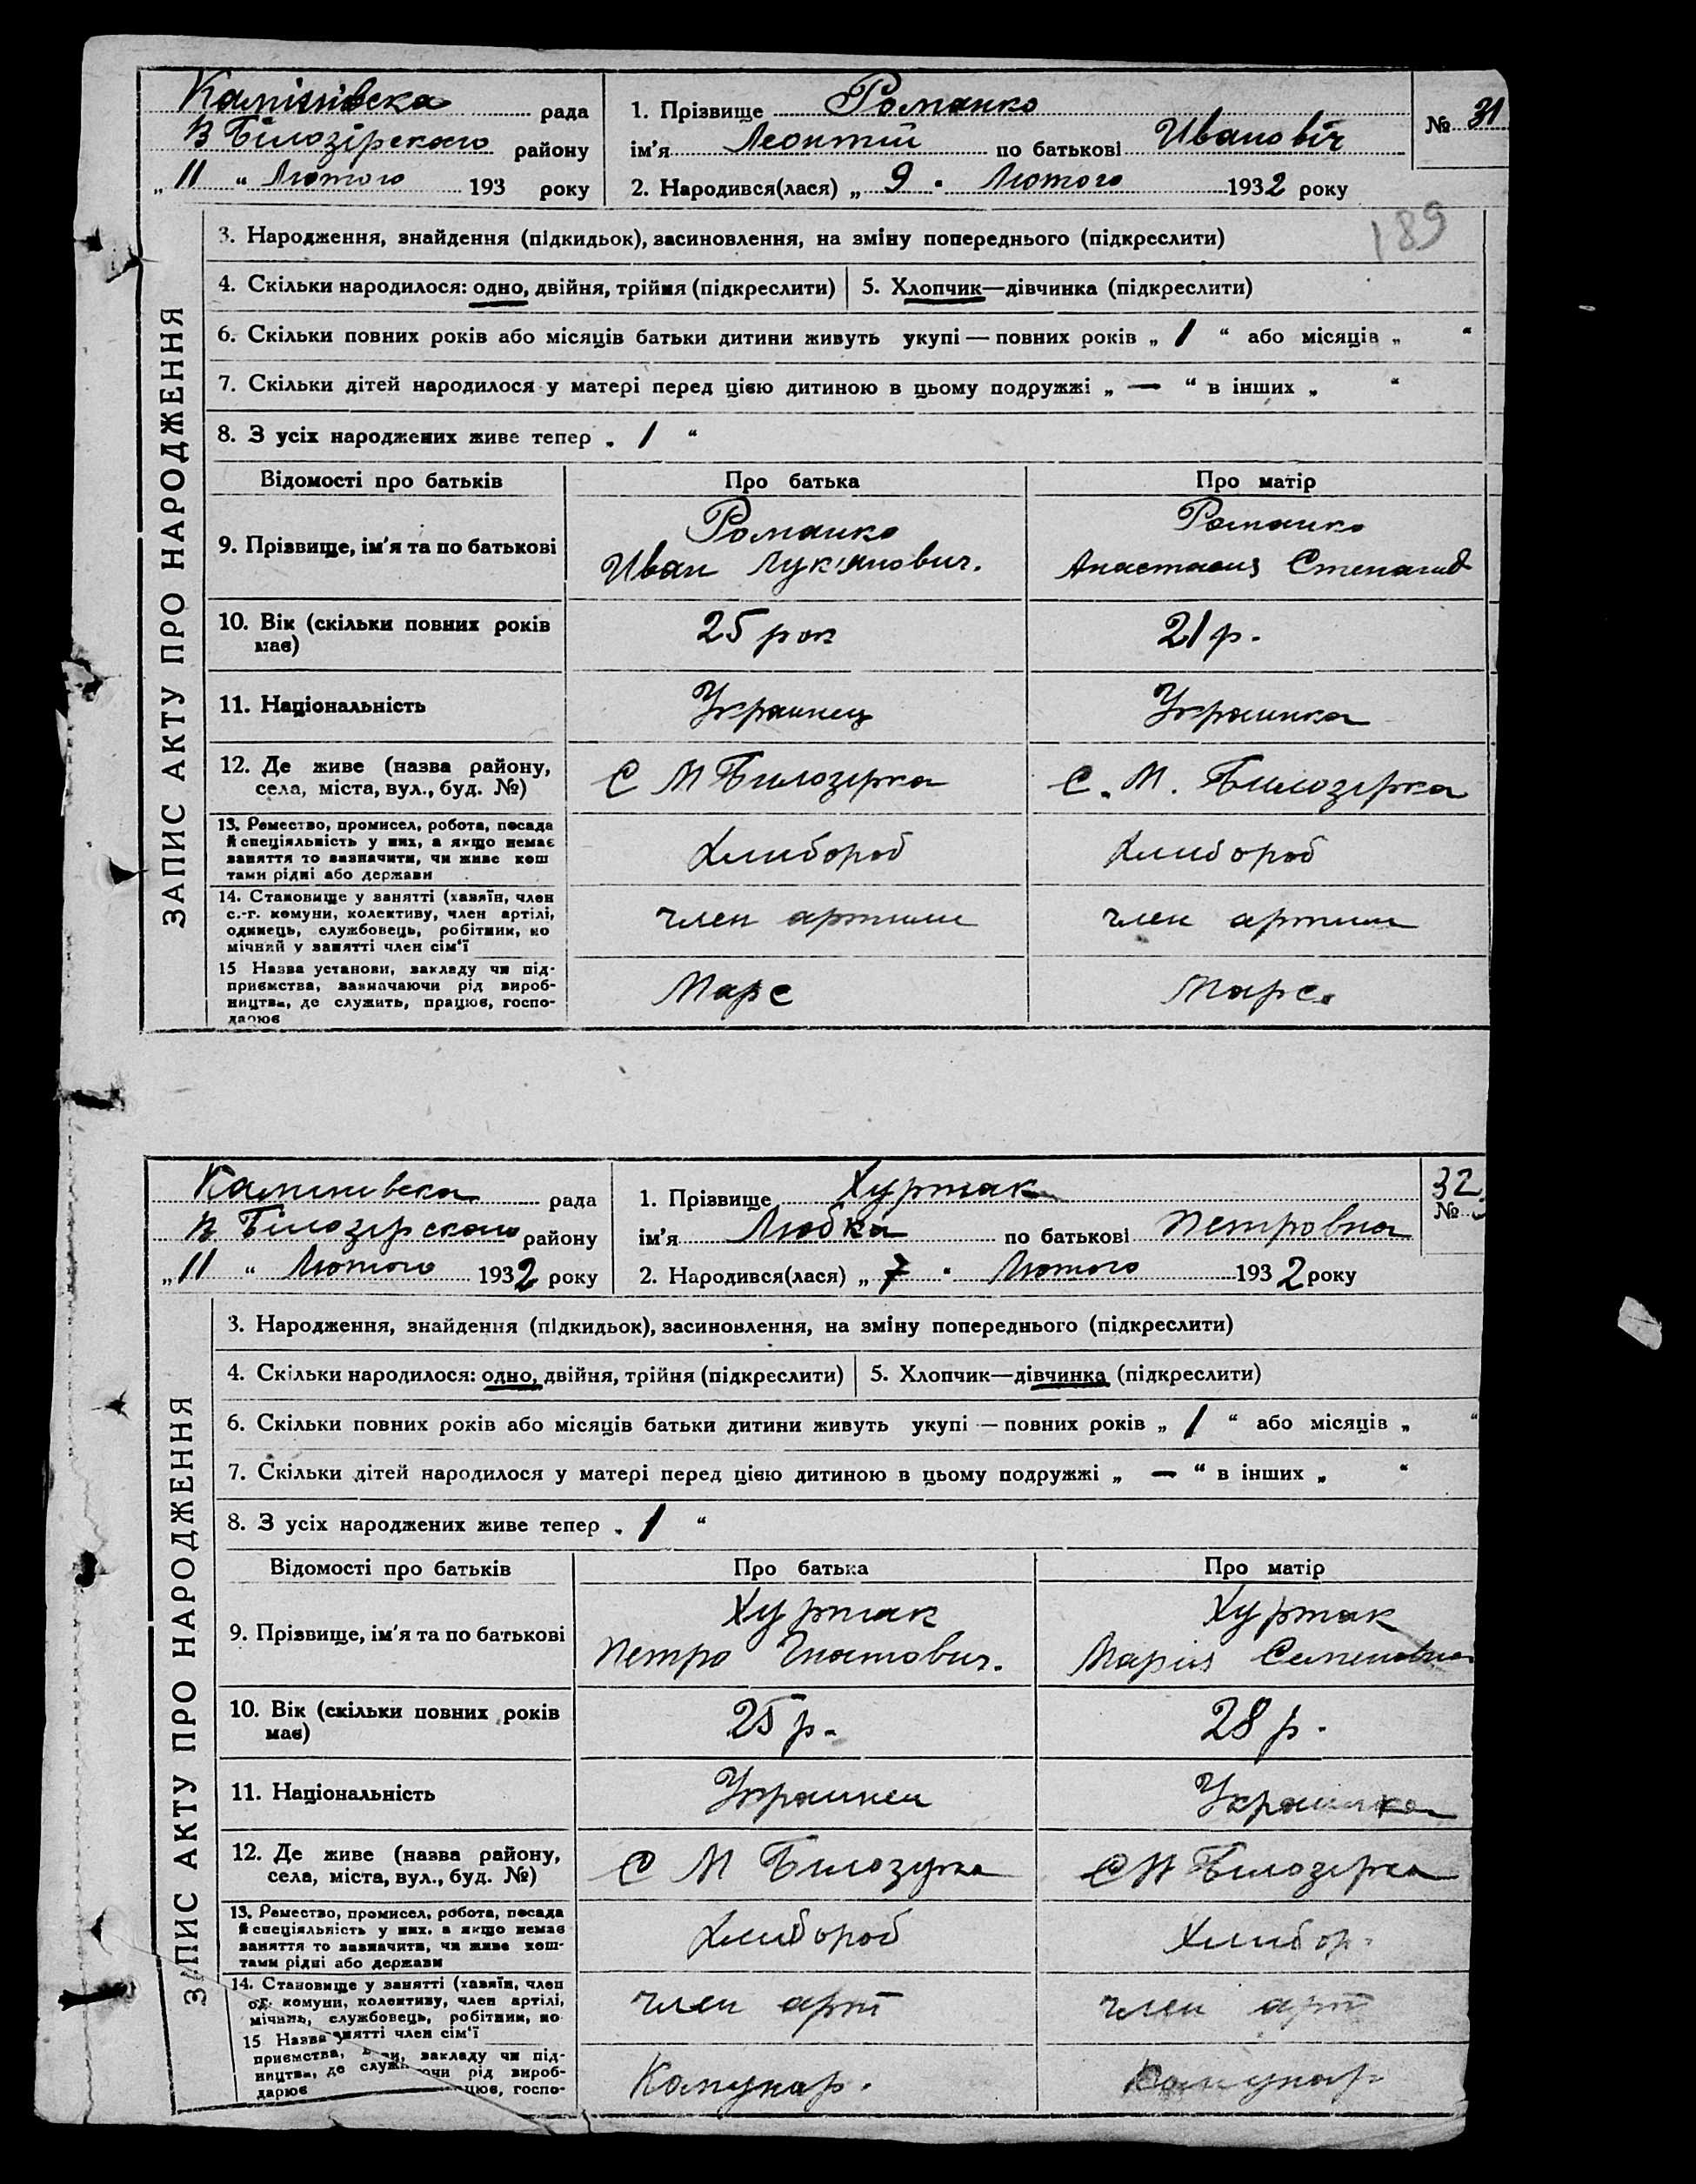 Камінівска рада
В Білозірского району
„ 11 “ Лютого 193 року
1. Прізвище Романко
ім'я Леонтій по батькові Иванович
2. Народився(лася) „ 9 “ Лютого 1932 року
№ 31
189
ЗАПИС АКТУ ПРО НАРОДЖЕННЯ
3. Народження, знайдення (підкидьок), засиновлення, на зміну попереднього (підкреслити)
4. Скільки народилося: одно, двійня, трійня (підкреслити) 5. Хлопчик—дівчинка (підкреслити)
6. Скільки повних років або місяців батьки дитини живуть укупі — повних років „ 1 “ або місяців „ “
7. Скільки дітей народилося у матері перед цією дитиною в цьому подружжі „ — “ в інших „ “
8. З усіх народжених живе тепер „ 1 “
Відомості про батьків Про батька Про матір
9. Прізвище, ім'я та по батькові
Романко
Иван Лук'янович.
Романко
Анастасия
10. Вік (скільки повних років
має)
25 рок
21 р.
11. Національність
Украинец
Украинка
12. Де живе (назва району,
села, міста, вул., буд. №)
С М Билозірка
С. М. Билозірка
13. Ремество, промисел, робота, посада
й спеціяльність у них, а якщо немає
заняття то зазначити, чи живе кош
тами рідні або держави
Хлибороб
Хлибороб
14. Становище у занятті (хазяїн, член
с.-г. комуни, колективу, член артілі,
одинець, службовець, робітник, по
мічний у занятті член сім'ї
член артили
член артили
15 Назва установи, закладу чи під-
приємства, зазначаючи рід вироб-
ництва, де служить, працює, госпо-
дарює
Марс
Марс.
Каминивска рада
В Білозірского району
„ 11 “ Лютого 1932 року
1. Прізвище Хуртак
ім'я Любка по батькові Петровна
2. Народився(лася) „ 7 “ Лютого 1932 року
32
№
ЗАПИС АКТУ ПРО НАРОДЖЕННЯ
3. Народження, знайдення (підкидьок), засиновлення, на зміну попереднього (підкреслити)
4. Скільки народилося: одно, двійня, трійня (підкреслити) 5. Хлопчик—дівчинка (підкреслити)
6. Скільки повних років або місяців батьки дитини живуть укупі — повних років „ 1 “ або місяців „ “
7. Скільки дітей народилося у матері перед цією дитиною в цьому подружжі „ — “ в інших „ “
8. З усіх народжених живе тепер „ 1 “
Відомості про батьків Про батька Про матір
9. Прізвище, ім'я та по батькові
Хуртак
Петро Гнатович.
Хуртак
Мария Семеновна
10. Вік (скільки повних років
має)
25 р.
28 р.
11. Національність
Украинец
Украинка
12. Де живе (назва району,
села, міста, вул., буд. №)
С М Билозірка
С М Билозірка
13. Ремество, промисел, робота, посада
й спеціяльність у них, а якщо немає
заняття то зазначити, чи живе кош-
тами рідні або держави
Хлибороб
Хлибор.
14. Становище у занятті (хазяїн, член
комуни, колективу, член артілі,
службовець, робітник, по
мічний занятті член сім'ї
член арт
член арт
15 Назва закладу чи під-
приємства, рід вироб-
ництва, де госпо-
дарює
Комунар.
Комунар.